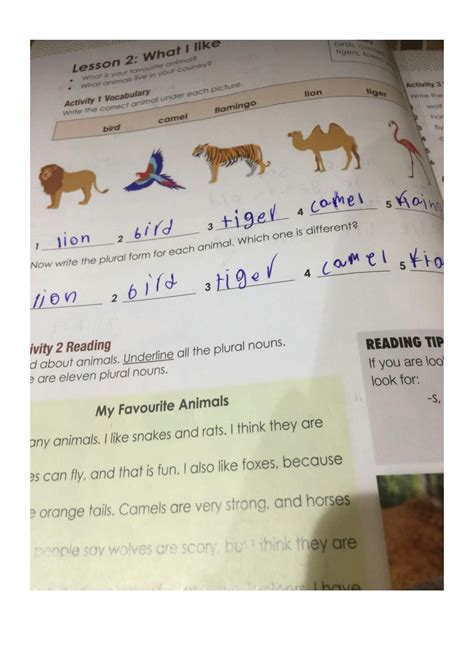 Lesson 2: What I like
• What is your favourite animal?
• What animals live in your country?
Activity 1 Vocabulary
Write the correct animal under each picture.
bird camel flamingo lion tiger
1 lion 2 bird 3 tiger 4 camel 5
Now write the plural form for each animal. Which one is different?
lion 2 bird 3 tiger 4 camel 5
ivity 2 Reading
d about animals. Underline all the plural nouns.
e are eleven plural nouns.
My Favourite Animals
any animals. I like snakes and rats. I think they are
es can fly, and that is fun. I also like foxes, because
e orange tails. Camels are very strong, and horses
people say wolves are scary, but I think they are
I have
birds,
tigers, foxes
Activity 3
Write the
wolf
READING TIP
If you are loo
look for:
-s,